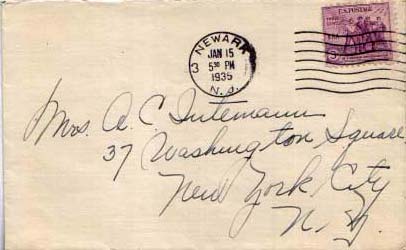 U.S. POSTAGE
3 NEWARK
JAN 15
5 30 PM
1935
N.J.
Mrs. A. C. Intemann
37 Washington Square
New York City
N.Y.